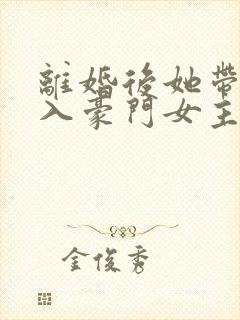 離婚後她帶
入豪門女主
金俊秀